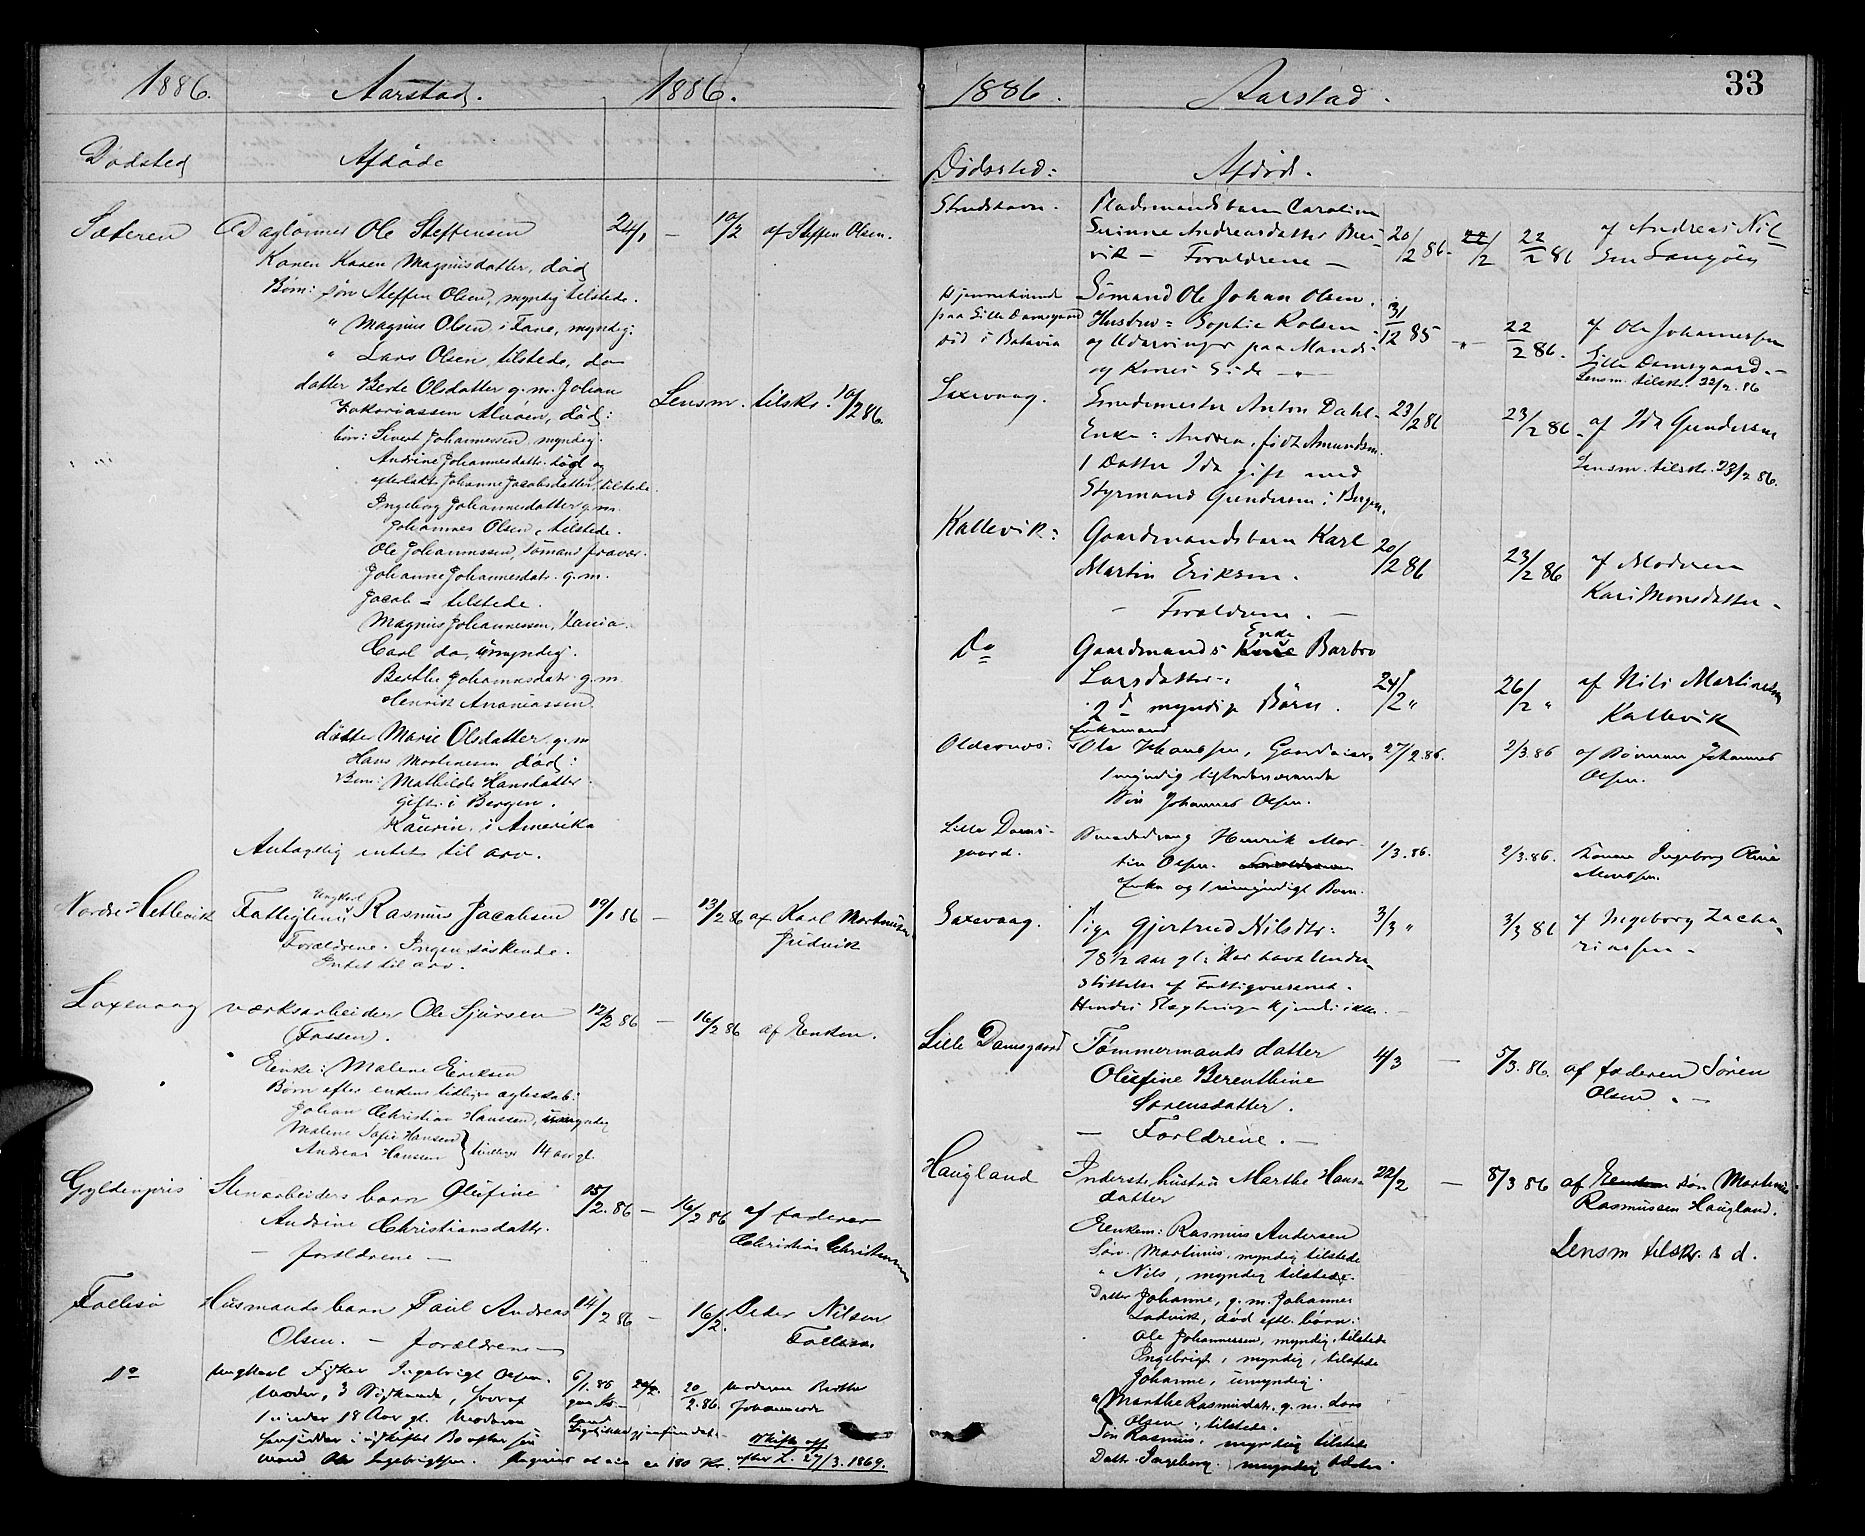 1886. Aarstad. 1886.
Dødsted Afdøde
Sæteren Daglønner Ole Steffensen 24/1 — 10/2 af Steffen Olsen.
Konen Karen Magnusdatter, død
Børn: søn Steffen Olsen, myndig tilstede.
" Magnus Olsen i Fane, myndig:
" Lars Olsen, tilstede, do
datter Berte Olsdatter g.m. Johan
Zakariassen Alvøen, død: Lensm. tilskr. 10/2 86.
børn: Sivert Johannessen, myndig.
Andrine Johannesdatter død og
efterladt Johanne Jacobsdatter, tilstede.
Ingeborg Johannesdatter g.m.
Johannes Olsen, tilstede.
Ole Johannessen, Sømand fravær.
Johanne Johannesdatr. g.m.
Jacob – tilstede.
Magnus Johannessen,
Carl do, umyndig.
Berthe Johannesdatr. g.m.
Henrik Ananiassen
datter Marie Olsdatter g.m
Hans Martinesen død:
Børn: Mathilde Hansdatter
gift i Bergen.
Laurin, i Amerika
Antagelig intet til arv.
Nordre Hetlevik Fattiglem Ungkarl Rasmus Jacobsen 19/1 86 — 13/2 86 af Karl Martinusen
Forældrene. Ingen søskende. Jridvik
Intet til arv.
Laxevaag værksarbeider Ole Sjursen 12/2 86 — 16/2 86 af Enken.
(Fossen).
Enke: Malene Eriksen
Børn efter enkens tidligere ægteskab:
Johan Christian Hanssen, umyndig
Malene Sofie Hansen
Andreas Hansen } tvillinger 14 aar gl.
Gyldenpris Stenarbeiders barn Olufine 15/2. 86 — 16/2 86 af faderen
Andrine Christiansdatter. Christian Christensen
— forældrene —
Follesø Husmands barn Paul Andreas 14/2 86 — 16/2. Peder Nilsen
Olsen. — forældrene — Follesø.
Do Ungkarl Fisker Ingebrigt Olsen. 6/1. 86 20/2. 20/2. 86. Moderen Berthe
Moder, 3 Sødskende, hvoraf Johannesdr
1 under 18 Aar gl. Moderen
hensidder i uskiftet Bo efter sin Skifte off
mand Ole Ingebrigtsen. 180 Kr. efter L. 27/3. 1869.
1886. Aarstad. 33
Dødssted: Afdød.
Strudshavn. Pladsmandsbarn Caroline
Severine Andreasdatter Brei- 20/2 86. 22/2 22/2 86 af Andreas Nil
vik – Forældrene – sen
Hjemmehørende Sømand Ole Johan Olsen. 31/12 85 — " — 22/2 86. af Ole Johannessen
paa Lille Damsgaard Hustru: Sophie Rolsen Lille Damsgaard. –
død i Batavia og Udarvinger paa Mands- Lensm. tilskr. 22/2. 86
og Kones Side –"–
Laxevaag. Smedemester Anton Dahl. 23/2 86 23/2 86. af Ida Gundersen
Enke: Andrea, født Amundsen.
1 Datter Ida gift med Lensm. tilskr. 23/2 86.
Styrmand Gundersen i Bergen.
Kallevik: Gaardmandsbarn Karl 20/2 86 23/2 86 af Moderen
Martin Eriksen. Kari Monsdatter –
— Forældrene. —
Do Gaardmands Kone Enke Barbro
Larsdatter: 24/2 " 26/2 " af Nils Martinsen
2 d myndige Børn. Kallevik
Oldernæs. Enkemand Ole Hanssen, Gaardeier. 27/2. 86. 2/3. 86 af Sønnen Johannes
1 myndig tilstedeværende Olsen.
Søn Johannes Olsen.
Lille Dams- Smededreng Henrik Mar- 1/3. 86. 2/3. 86. Konen Ingeborg Oline
gaard. tin Olsen. Forældrene
Enke og 1 umyndigt Barn.
Laxevaag. Pige Gjertrud Nilsdtr: 3/3 " 3/3 86 af Ingeborg Zacha-
78½ Aar gl: Har havt Under- riassen –
støttelse af Fattigvæsenet.
Hendes Slægtninge kjendes ikke.
Lille Damsgaard Tømmermands datter 4/3 — 5/3. 86. af faderen Søren
Olufine Berenthine Olsen. —
Sørensdatter.
— Forældrene. —
Haugland Inderste hustru Marthe Hans 22/2 — 8/3 86 af Enkem søn Martinus
datter Rasmussen Haugland.
Enkem: Rasmus Andersen
Søn. Martinus, myndig tilstede Lensm tilskr. s d.
" Nils, myndig tilstede.
Datter Johanne, g.m. Johannes
Ladvik, død eftl. børn:
Ole Johannessen, myndig, tilstede
Ingebrigt, myndig, tilstede
Johanne, umyndig.
" Marthe Rasmusdatr. g.m. Lars
Olsen, tilstede.
Søn Rasmus, myndig tilstede
Dattr. Ingeborg, myndig tilstede